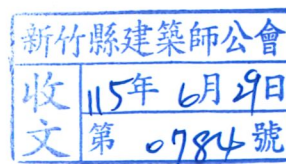 新竹縣建築師公會
收文
115年 6月29日
第 0784 號